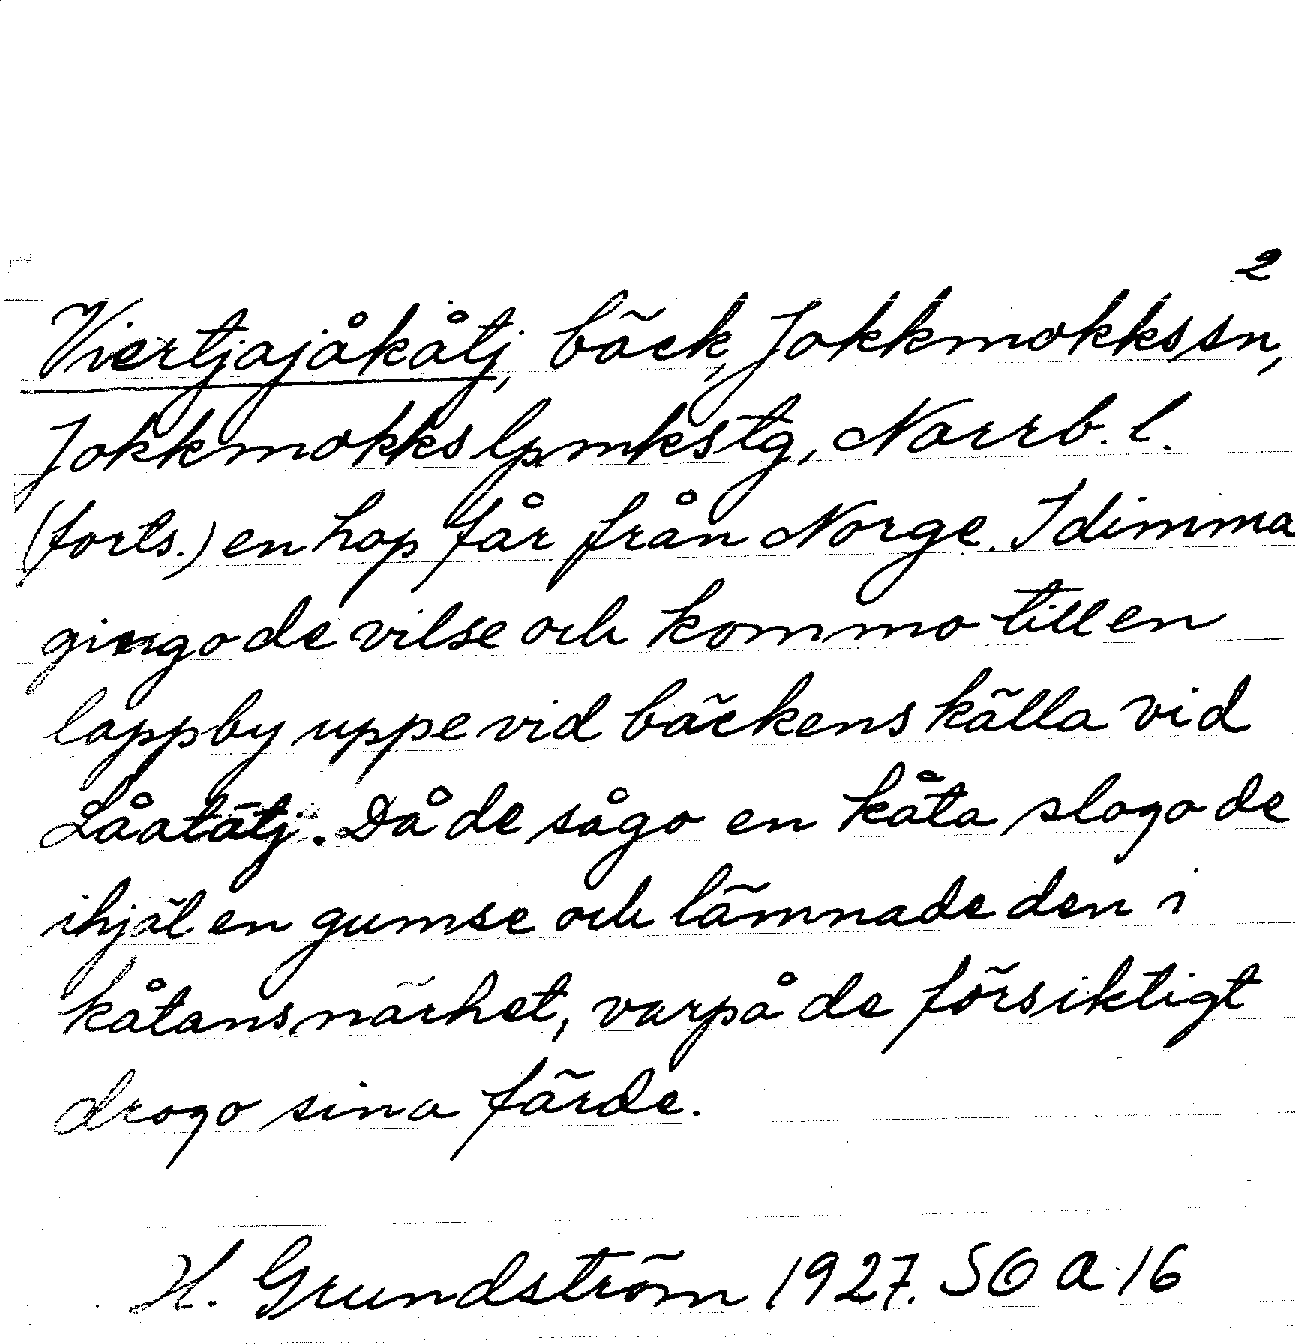 2
Viertjajåkåtj, bäck, Jokkmokks sn,
Jokkmokks lpmkstg, Norrb. l.
(forts.) en hop får från Norge. I dimma
gingo de vilse och kommo till en
lappby uppe vid bäckens källa vid
Låatåtj. Då de sågo en kåta slogo de
ihjäl en gumse och lämnade den i
kåtans närhet, varpå de försiktigt
drogo sina färde.
H. Grundström 1927. SO A 16